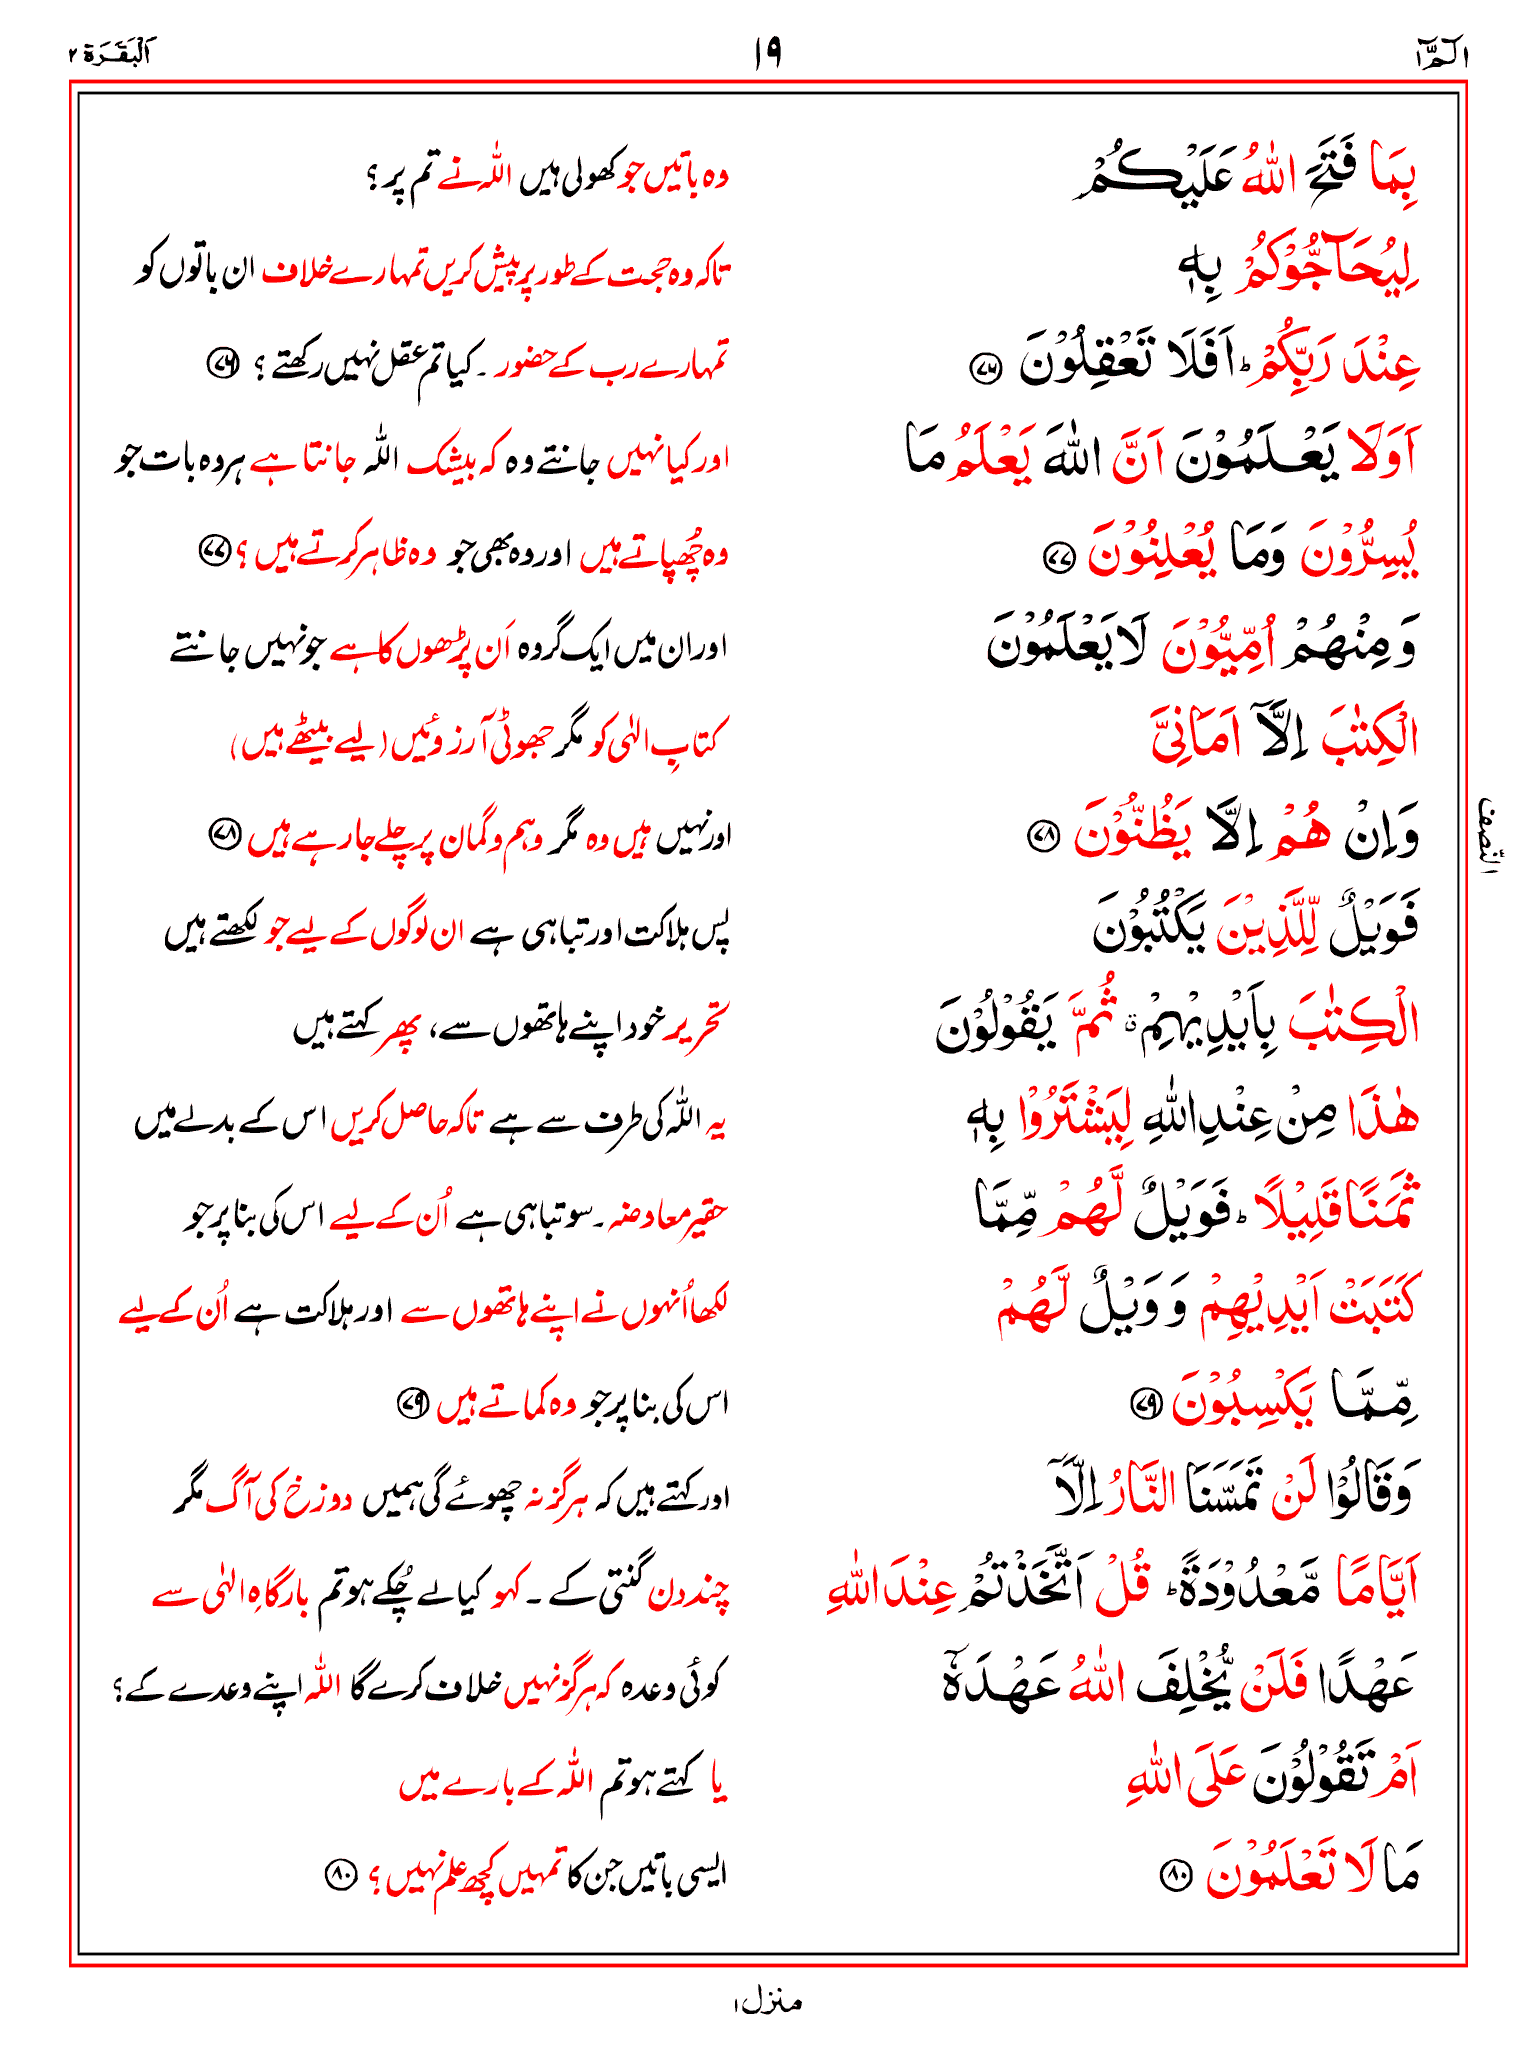 الٓمّٓ ١
١٩
اَلْبَقَرَة ٢
بِمَا فَتَحَ اللّٰهُ عَلَيْكُمْ
وہ باتیں جو کھولی ہیں اللہ نے تم پر؟
لِيُحَآجُّوْكُمْ بِهٖ
تاکہ وہ حجت کے طور پر پیش کریں تمہارے خلاف ان باتوں کو
عِنْدَ رَبِّكُمْ ؕ اَفَلَا تَعْقِلُوْنَ ﴿۷۶﴾
تمہارے رب کے حضور۔ کیا تم عقل نہیں رکھتے؟ ﴿۷۶﴾
اَوَلَا يَعْلَمُوْنَ اَنَّ اللّٰهَ يَعْلَمُ مَا
اور کیا نہیں جانتے وہ کہ بیشک اللہ جانتا ہے ہر وہ بات جو
يُسِرُّوْنَ وَمَا يُعْلِنُوْنَ ﴿۷۷﴾
وہ چُھپاتے ہیں اور وہ بھی جو وہ ظاہر کرتے ہیں؟ ﴿۷۷﴾
وَمِنْهُمْ اُمِّيُّوْنَ لَا يَعْلَمُوْنَ
اور ان میں ایک گروہ اَن پڑھوں کا ہے جو نہیں جانتے
الْكِتٰبَ اِلَّآ اَمَانِيَّ
کتابِ الٰہی کو مگر جھوٹی آرزوئیں (لیے بیٹھے ہیں)
وَاِنْ هُمْ اِلَّا يَظُنُّوْنَ ﴿۷۸﴾
اور نہیں ہیں وہ مگر وہم و گمان پر چلے جا رہے ہیں ﴿۷۸﴾
النّصف
فَوَيْلٌ لِّلَّذِيْنَ يَكْتُبُوْنَ
پس ہلاکت اور تباہی ہے ان لوگوں کے لیے جو لکھتے ہیں
الْكِتٰبَ بِاَيْدِيْهِمْ ۗ ثُمَّ يَقُوْلُوْنَ
تحریر خود اپنے ہاتھوں سے، پھر کہتے ہیں
هٰذَا مِنْ عِنْدِ اللّٰهِ لِيَشْتَرُوْا بِهٖ
یہ اللہ کی طرف سے ہے تاکہ حاصل کریں اس کے بدلے میں
ثَمَنًا قَلِيْلًا ؕ فَوَيْلٌ لَّهُمْ مِّمَّا
حقیر معاوضہ۔ سو تباہی ہے اُن کے لیے اس کی بنا پر جو
كَتَبَتْ اَيْدِيْهِمْ وَ وَيْلٌ لَّهُمْ
لکھا اُنہوں نے اپنے ہاتھوں سے اور ہلاکت ہے اُن کے لیے
مِّمَّا يَكْسِبُوْنَ ﴿۷۹﴾
اس کی بنا پر جو وہ کماتے ہیں ﴿۷۹﴾
وَقَالُوْا لَنْ تَمَسَّنَا النَّارُ اِلَّآ
اور کہتے ہیں کہ ہرگز نہ چھوئے گی ہمیں دوزخ کی آگ مگر
اَيَّامًا مَّعْدُوْدَةً ؕ قُلْ اَتَّخَذْتُمْ عِنْدَ اللّٰهِ
چند دن گنتی کے۔ کہو کیا لے چُکے ہو تم بارگاہِ الٰہی سے
عَهْدًا فَلَنْ يُّخْلِفَ اللّٰهُ عَهْدَهٗٓ
کوئی وعدہ کہ ہرگز نہیں خلاف کرے گا اللہ اپنے وعدے کے؟
اَمْ تَقُوْلُوْنَ عَلَى اللّٰهِ
یا کہتے ہو تم اللہ کے بارے میں
مَا لَا تَعْلَمُوْنَ ﴿۸۰﴾
ایسی باتیں جن کا تمہیں کچھ علم نہیں؟ ﴿۸۰﴾
منزل ۱